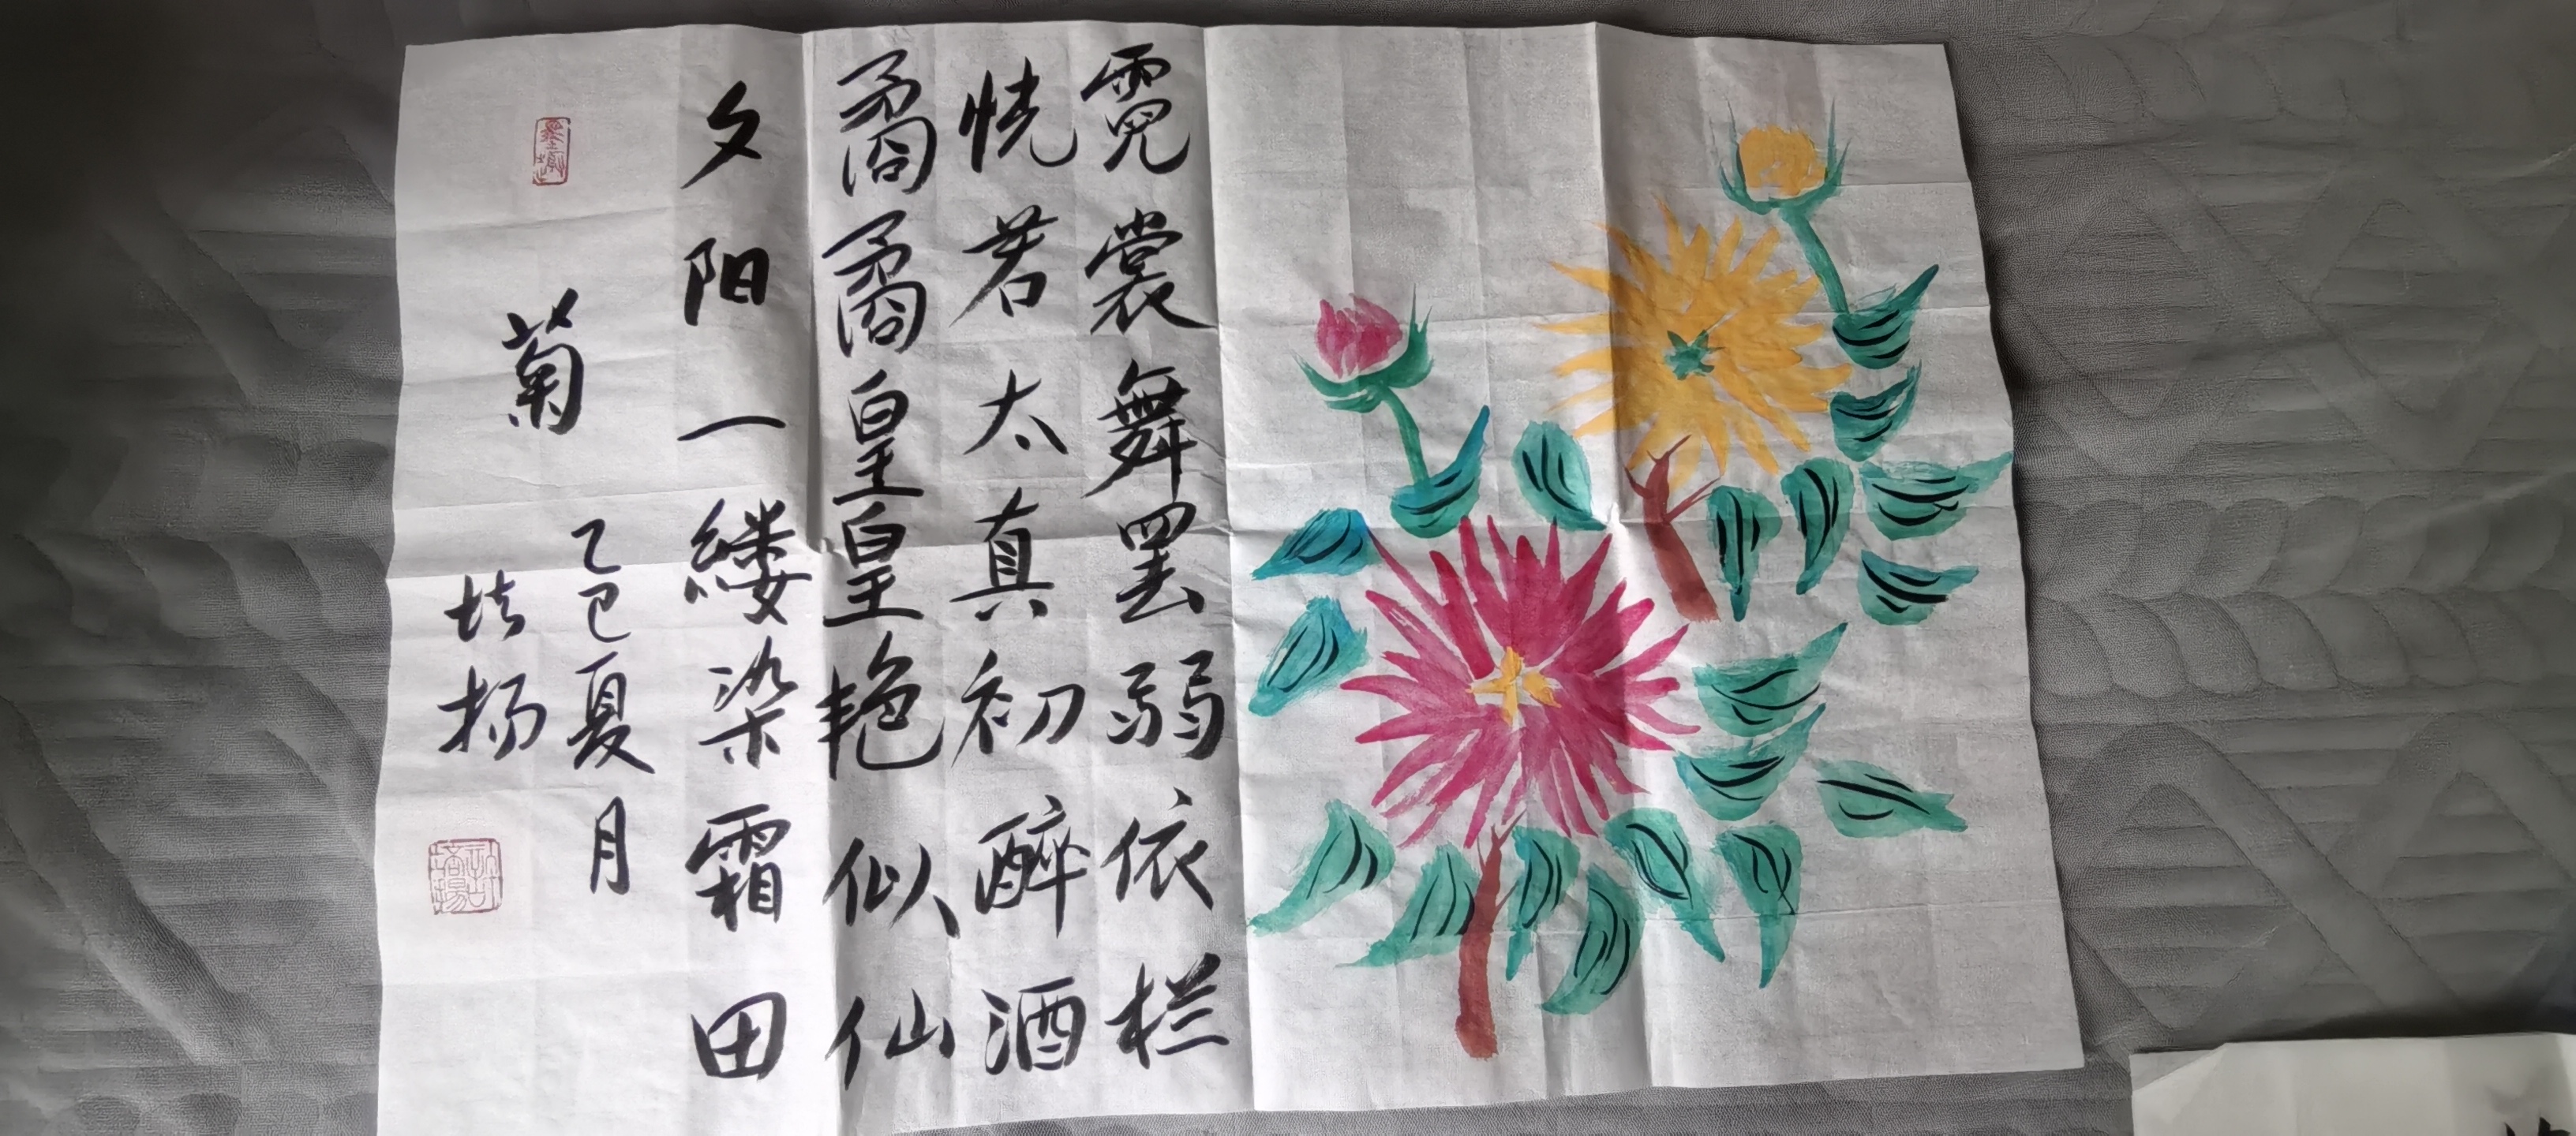 霓裳舞罢弱依栏
恍若太真初醉酒
矞矞皇皇艳似仙
夕阳一缕染霜田
菊
乙巳夏月
培扬
許培揚